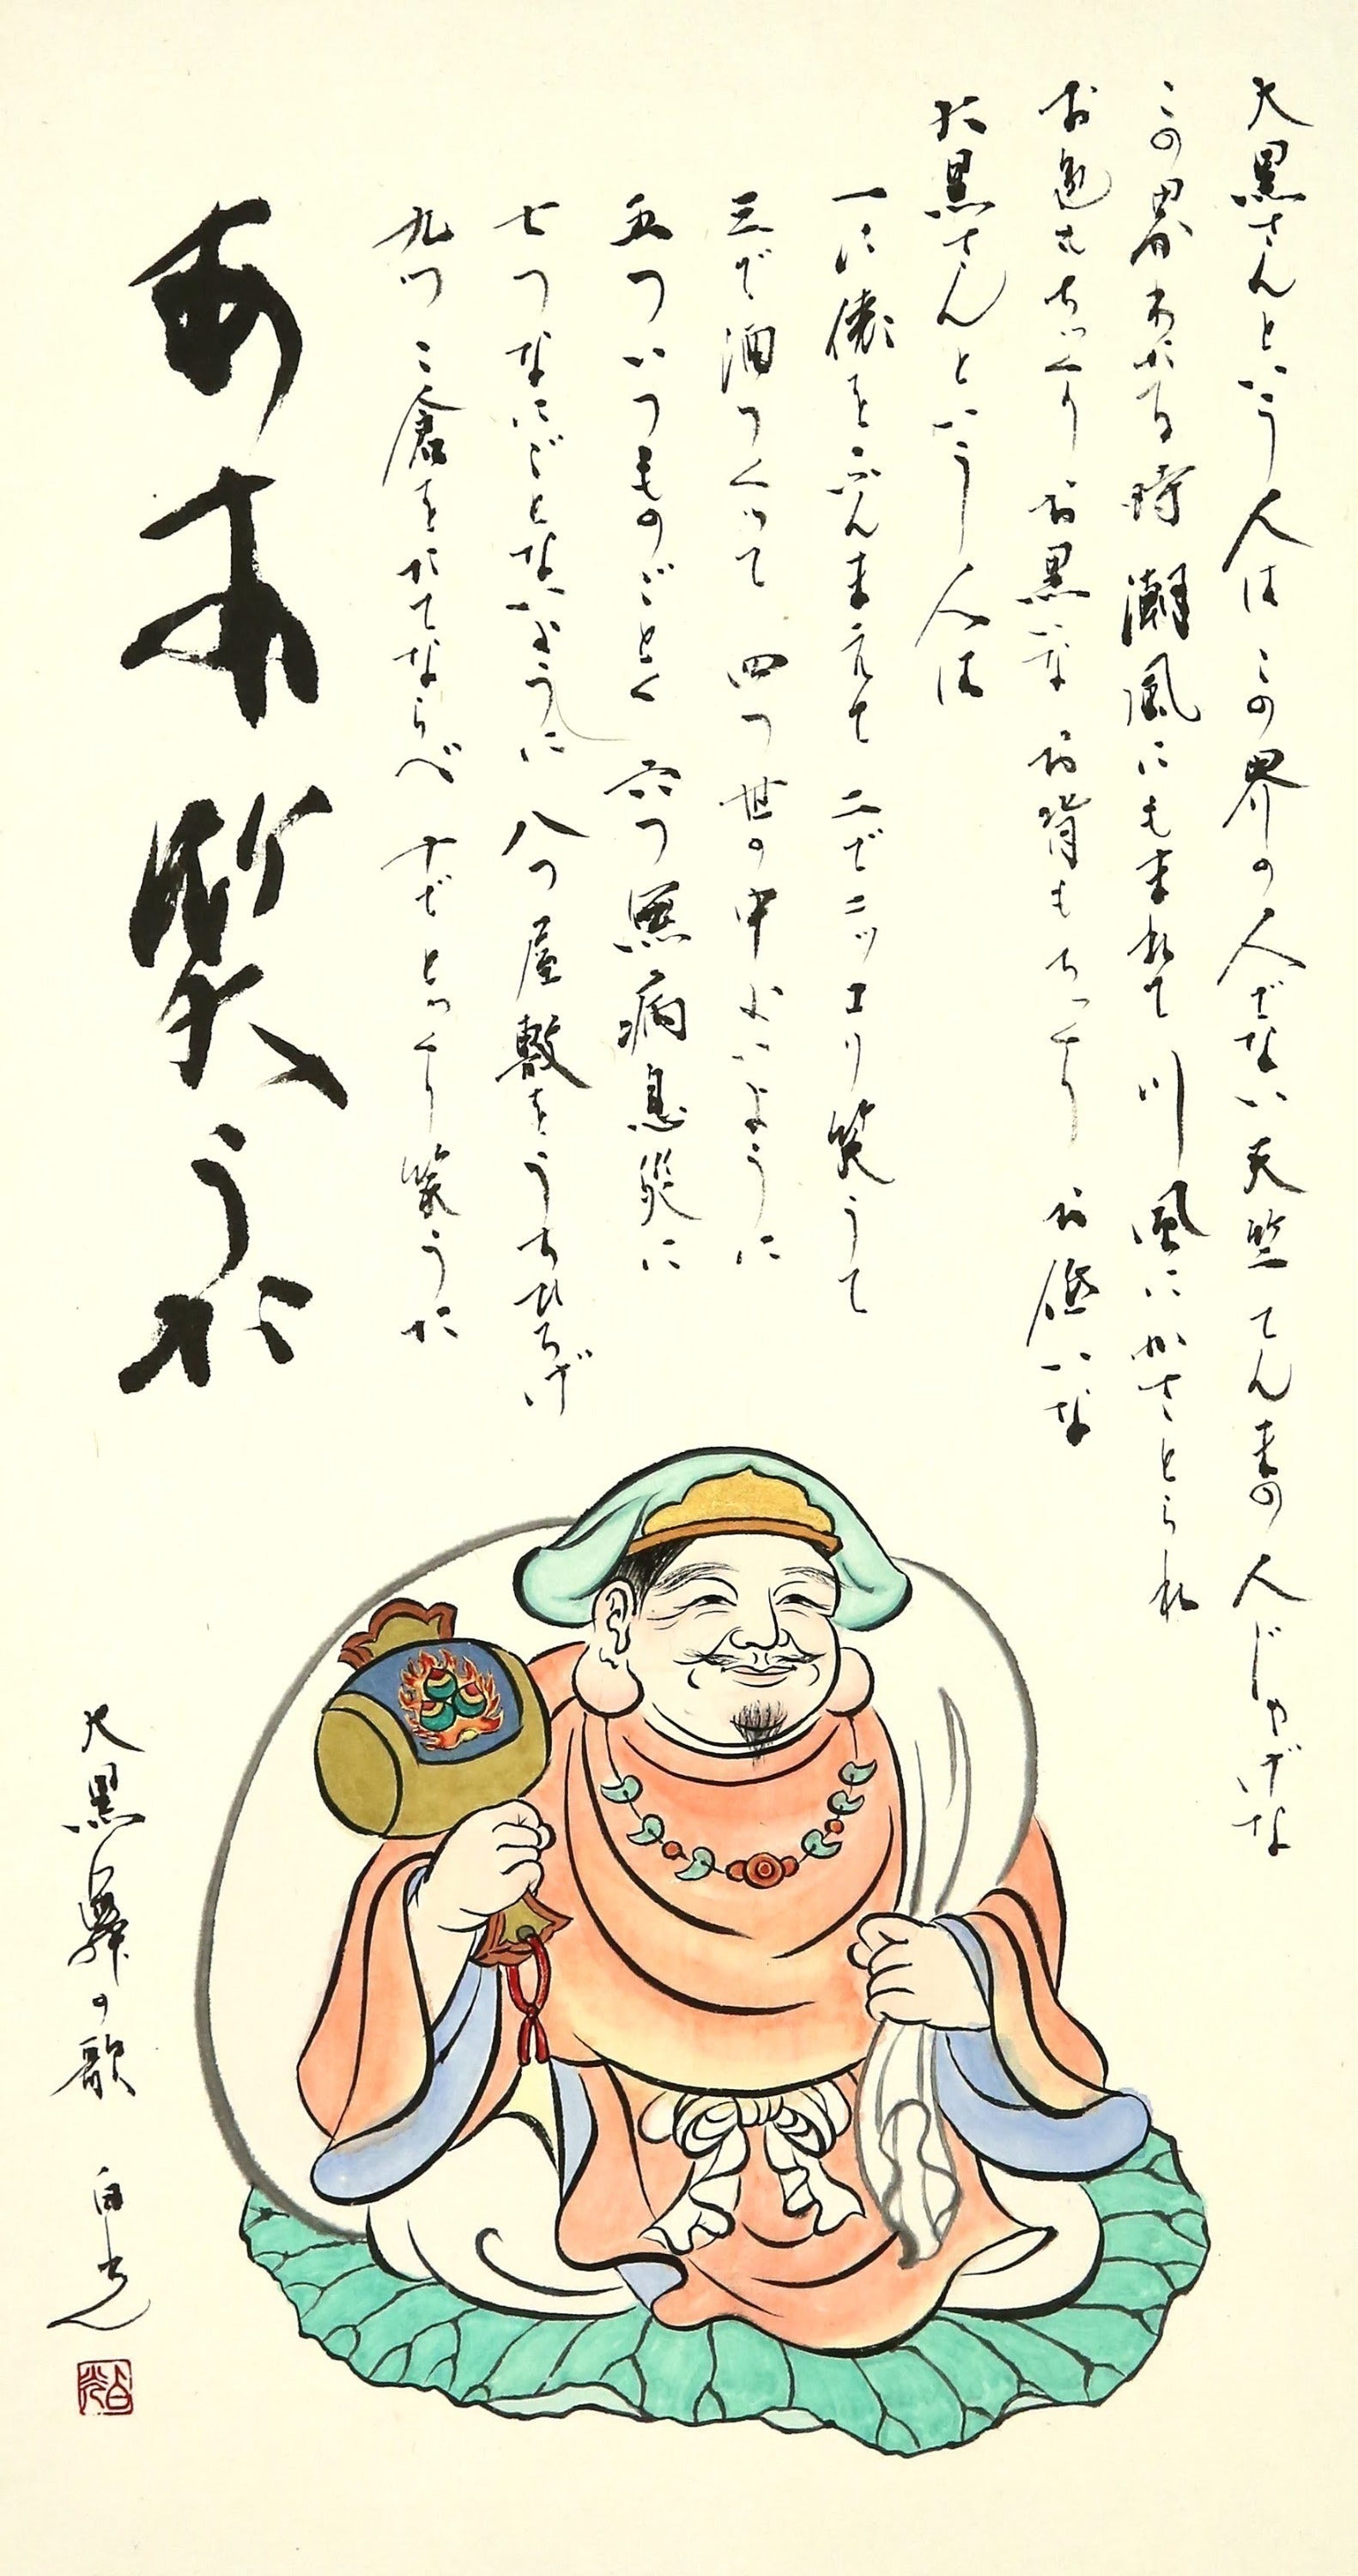 大黒さんという人は この界の人でない 天竺てんまの人じゃげな
この界わたる時 潮風にもまれて 川風にかさとられ
お色もちっくり お黒いな お背もちっくり お低いな
大黒さんという人は
一に俵をふんまえて 二でニッコリ笑うて
三で酒つくって 四つ世の中よいように
五ついつものごとく 六つ無病息災に
七つなにごとないように 八つ屋敷をうちひろげ
九つこ倉をたてならべ 十でとっくり笑うた
あゝ笑うた
大黒舞の歌 白光
白光